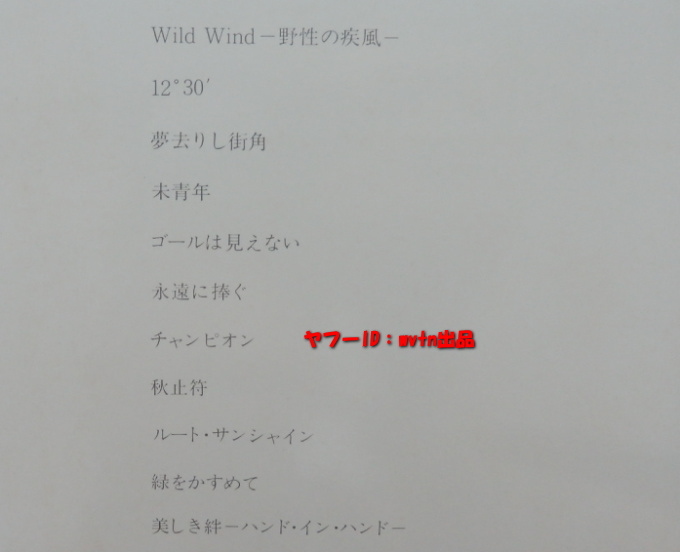 Wild Wind－野性の疾風－
12°30′
夢去りし街角
未青年
ゴールは見えない
永遠に捧ぐ
チャンピオン
ヤフーID：wvtn出品
秋止符
ルート・サンシャイン
緑をかすめて
美しき絆－ハンド・イン・ハンド－